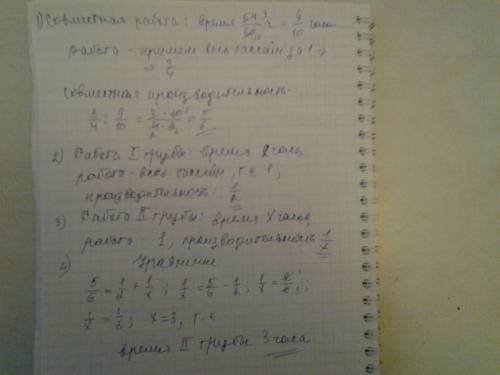 1) Совместная работа: время 54/60 ч = 9/10 часа
работа – примем весь бассейн за 1 ⇒
⇒ 3/4
Совместная производительность:
3/4 : 9/10 = 3·10/4·9 = 5/6
2) Работа I трубы: время 2 часа,
работа – весь бассейн, т.е 1,
производительность: 1/2
3) Работа II трубы: время x часов
работа – 1, производительность 1/x
4) Уравнение
5/6 = 1/2 + 1/x ; 1/x = 5/6 - 1/2 ; 1/x = 2/6 ;
1/x = 1/3 ; x=3, т.е
время II трубы 3 часа